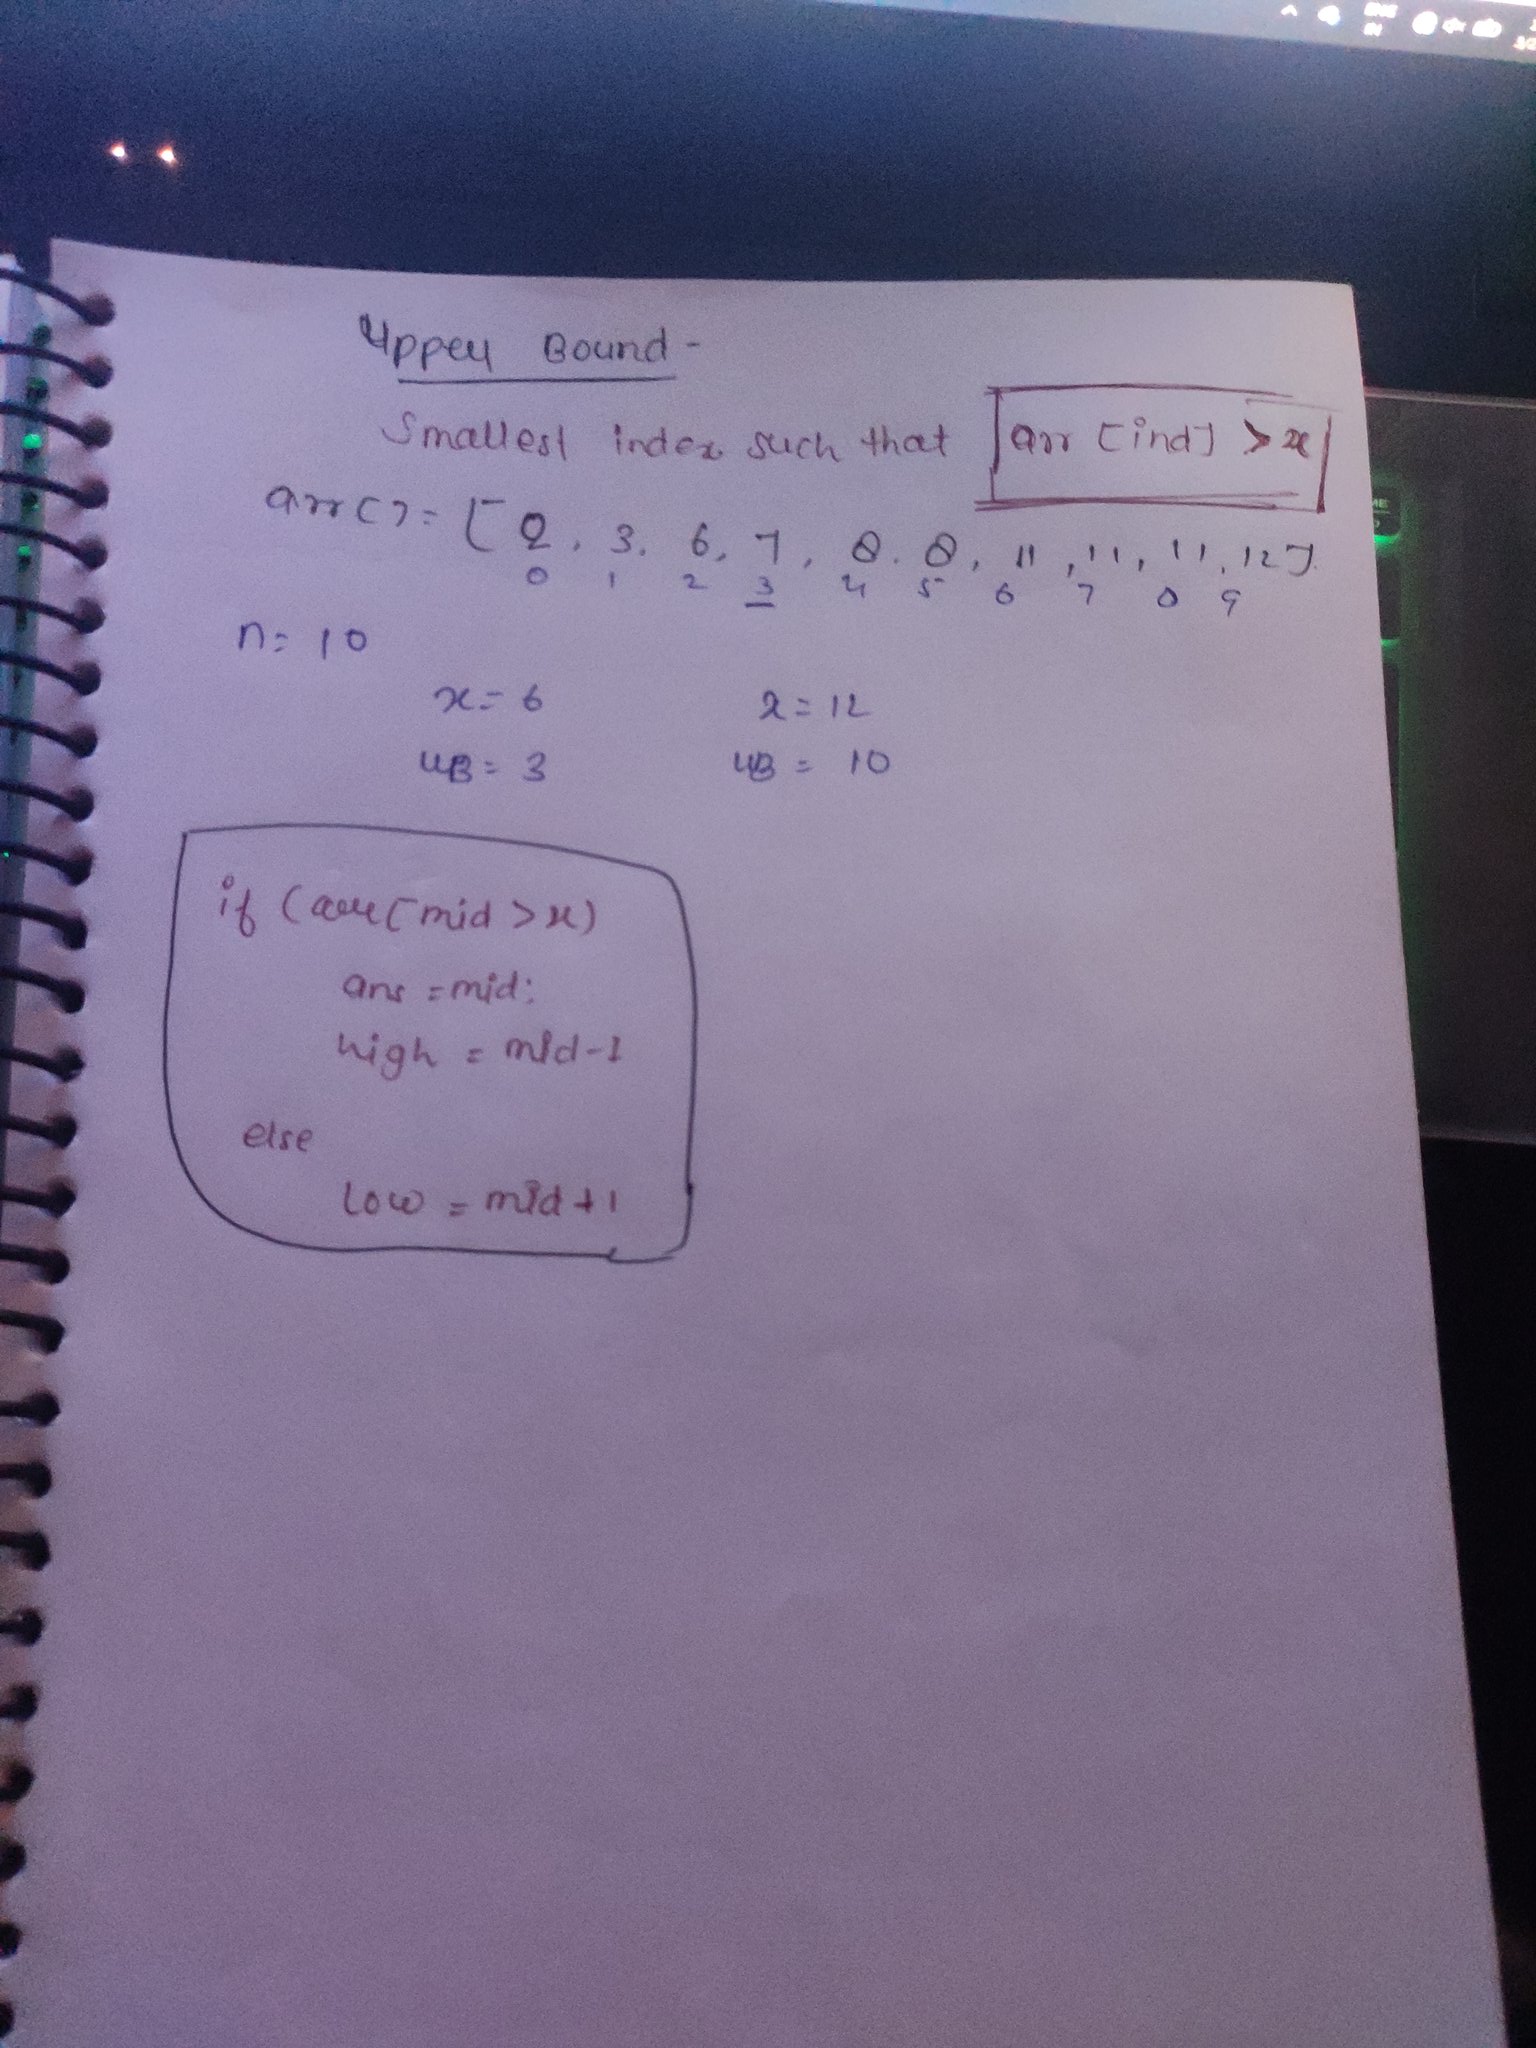 Upper Bound -
Smallest index such that arr [ind] > x
arr[] = [2, 3, 6, 7, 8, 8, 11, 11, 11, 12].
0 1 2 3 4 5 6 7 8 9
n = 10
x = 6 x = 12
UB = 3 UB = 10
if (arr[mid > x)
ans = mid;
high = mid-1
else
low = mid+1